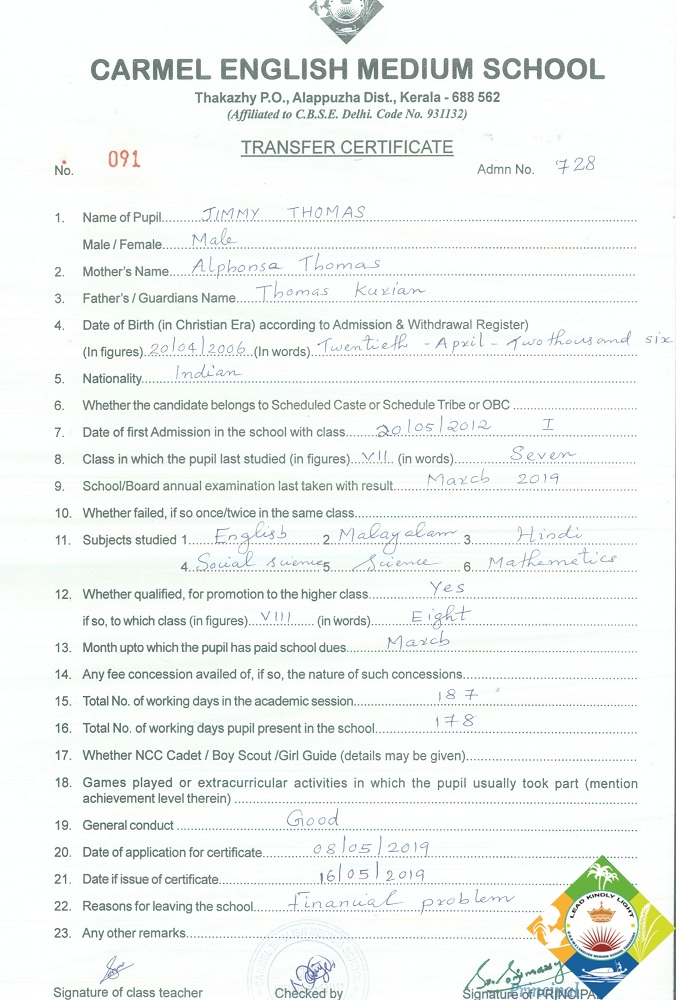 CARMEL ENGLISH MEDIUM SCHOOL
Thakazhy P.O., Alappuzha Dist., Kerala - 688 562
(Affiliated to C.B.S.E. Delhi. Code No. 931132)
TRANSFER CERTIFICATE
No. 091 Admn No. 728
1. Name of Pupil JIMMY THOMAS
Male / Female Male
2. Mother's Name Alphonsa Thomas
3. Father's / Guardians Name Thomas Kurian
4. Date of Birth (in Christian Era) according to Admission & Withdrawal Register)
(In figures) 20/04/2006 (In words) Twentieth - April - Two thousand six
5. Nationality Indian
6. Whether the candidate belongs to Scheduled Caste or Schedule Tribe or OBC
7. Date of first Admission in the school with class 20/05/2012 I
8. Class in which the pupil last studied (in figures) VII (in words) Seven
9. School/Board annual examination last taken with result March 2019
10. Whether failed, if so once/twice in the same class
11. Subjects studied 1 English 2 Malayalam 3. Hindi
4. Social science 5 Science 6. Mathematics
12. Whether qualified, for promotion to the higher class Yes
if so, to which class (in figures) VIII (in words) Eight
13. Month upto which the pupil has paid school dues March
14. Any fee concession availed of, if so, the nature of such concessions
15. Total No. of working days in the academic session 187
16. Total No. of working days pupil present in the school 178
17. Whether NCC Cadet / Boy Scout /Girl Guide (details may be given)
18. Games played or extracurricular activities in which the pupil usually took part (mention
achievement level therein)
19. General conduct Good
20. Date of application for certificate 08/05/2019
21. Date if issue of certificate 16/05/2019
22. Reasons for leaving the school Financial problem
23. Any other remarks
LEAD KINDLY LIGHT
Signature of class teacher Checked by Signature of PRINCIPAL
Principal